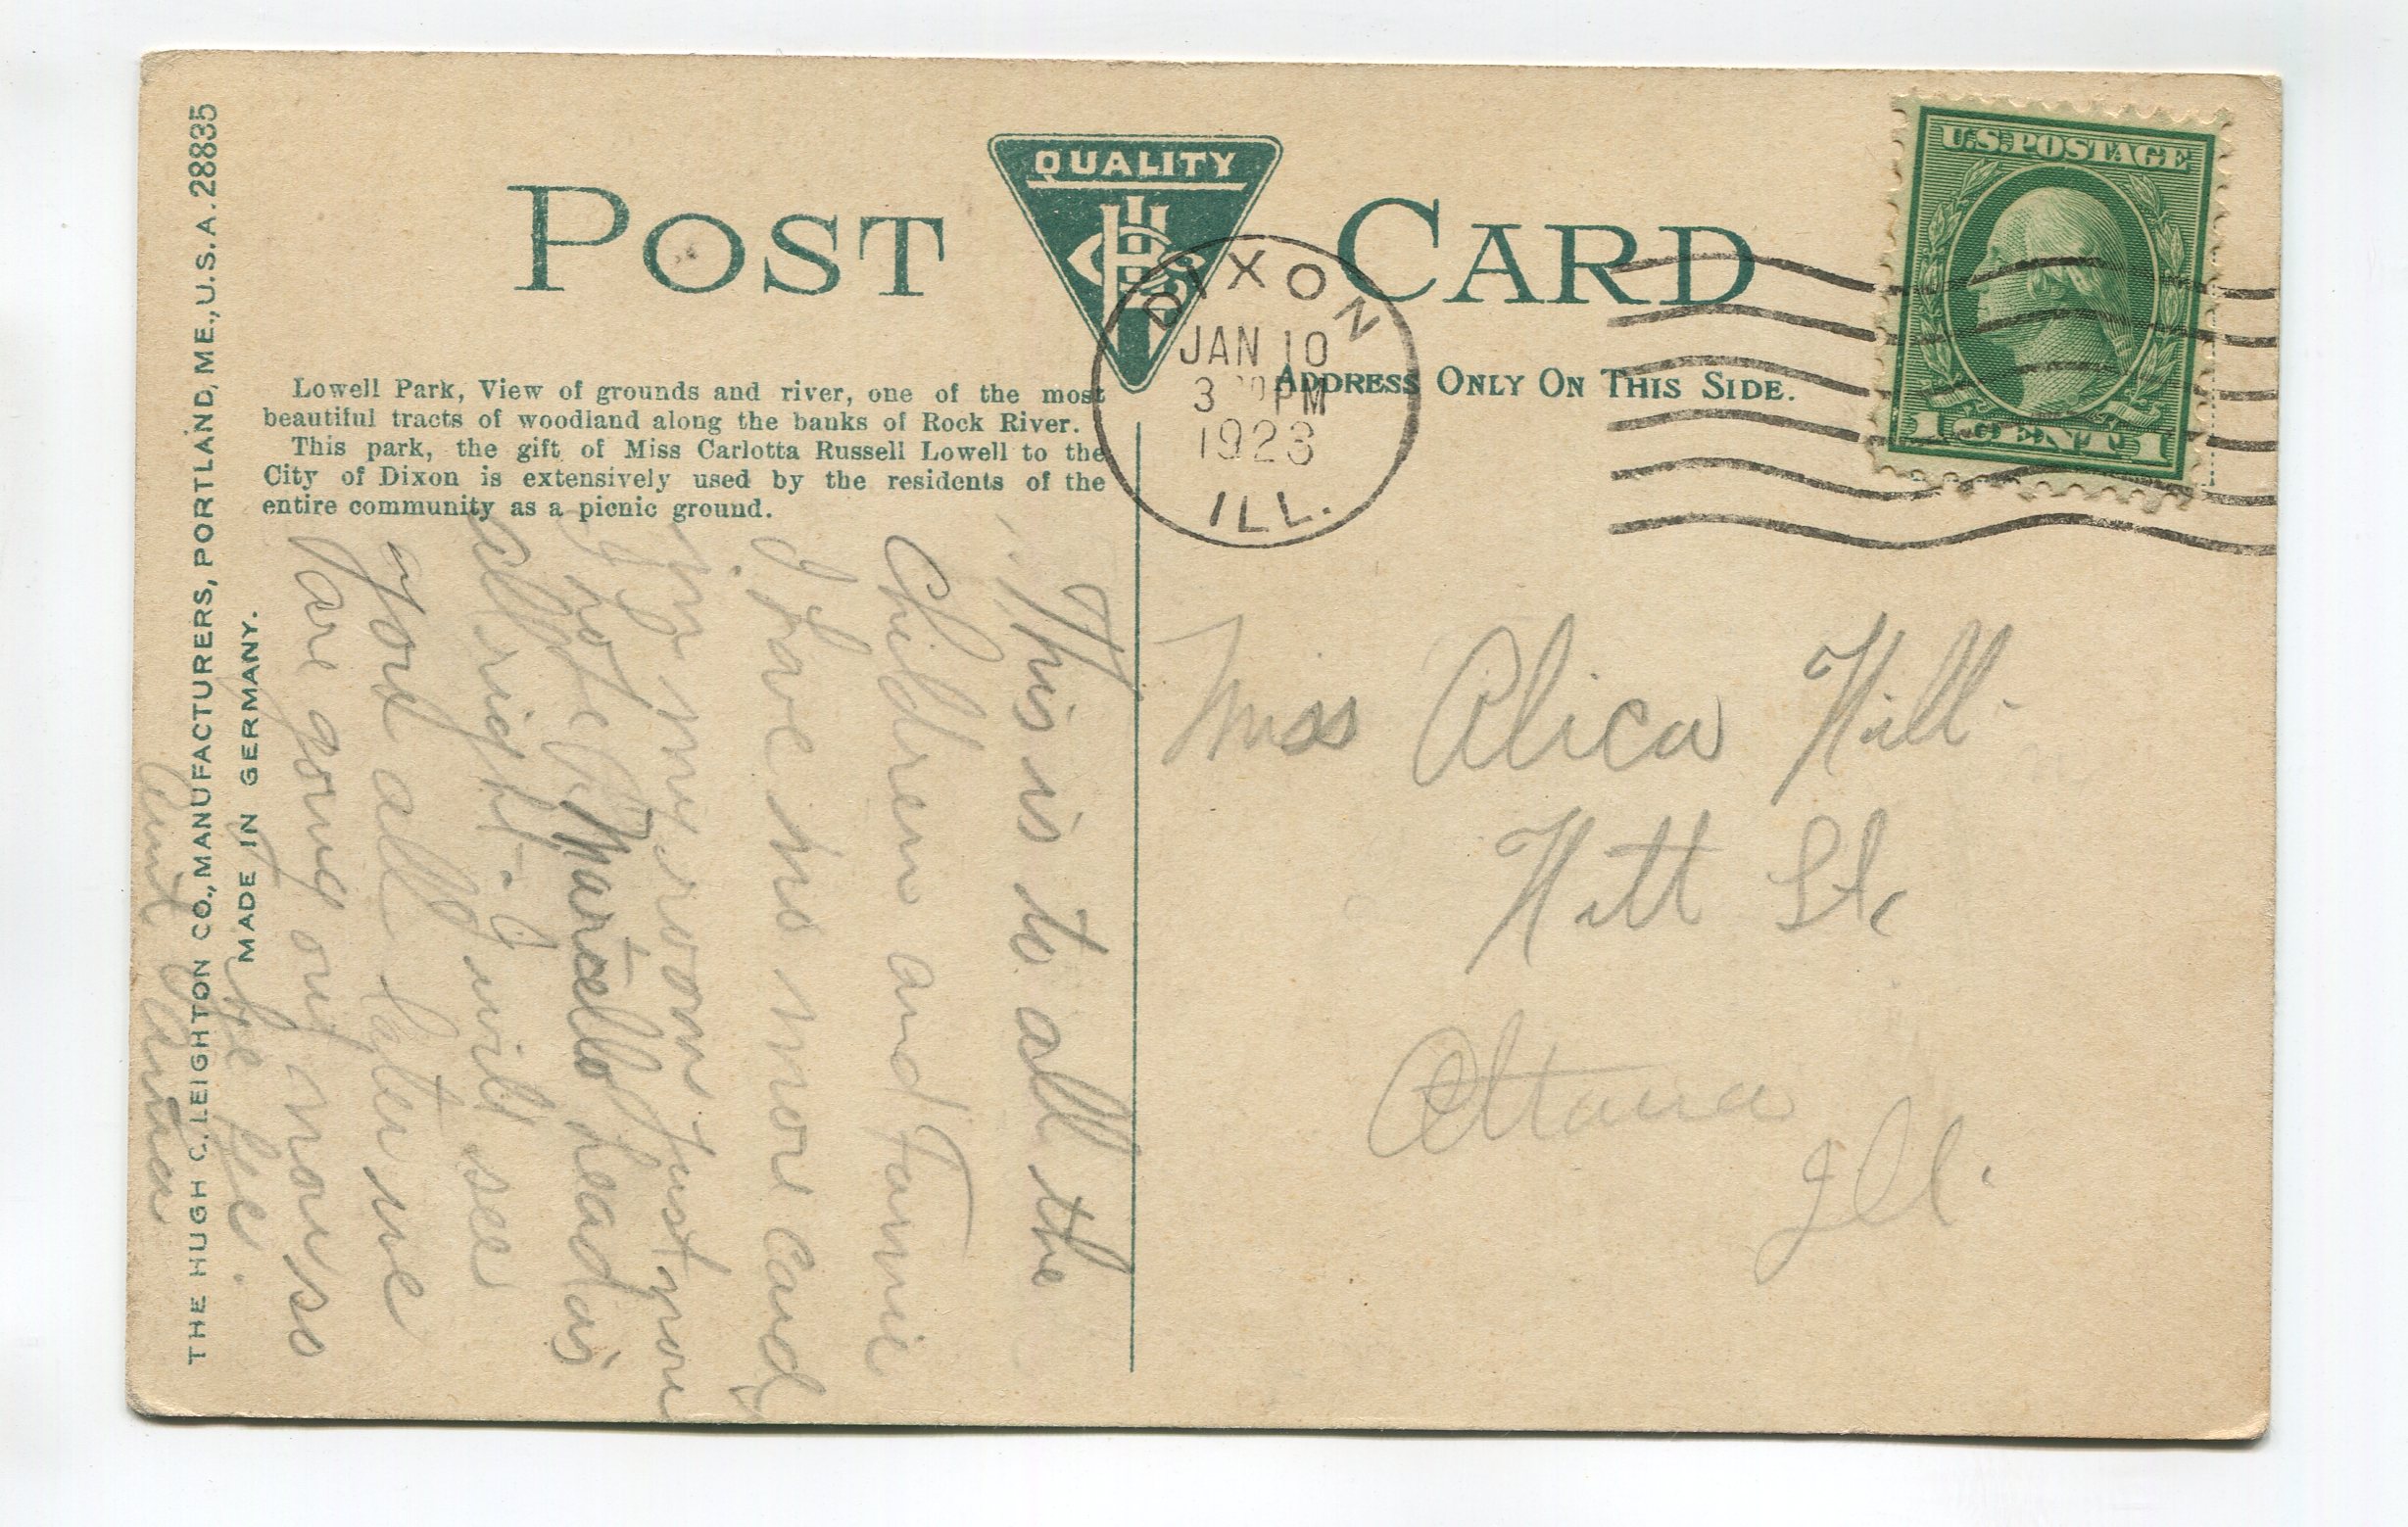 POST CARD
QUALITY
DIXON
JAN 10
3 PM
1923
ILL.
U.S. POSTAGE
1 CENT 1
ADDRESS ONLY ON THIS SIDE.
Lowell Park, View of grounds and river, one of the most
beautiful tracts of woodland along the banks of Rock River.
This park, the gift of Miss Carlotta Russell Lowell to the
City of Dixon is extensively used by the residents of the
entire community as a picnic ground.
THE HUGH C. LEIGHTON CO., MANUFACTURERS, PORTLAND, ME., U.S.A. 28835
MADE IN GERMANY.
This is to all the
Children and Fannie
I have no more Cards
in my room Just now
hope Marcello head is
all right - I will see
you all later we
are going out now so
bye bye.
Aunt
Miss Alica Hill
Hitt St
Ottawa
Ill.